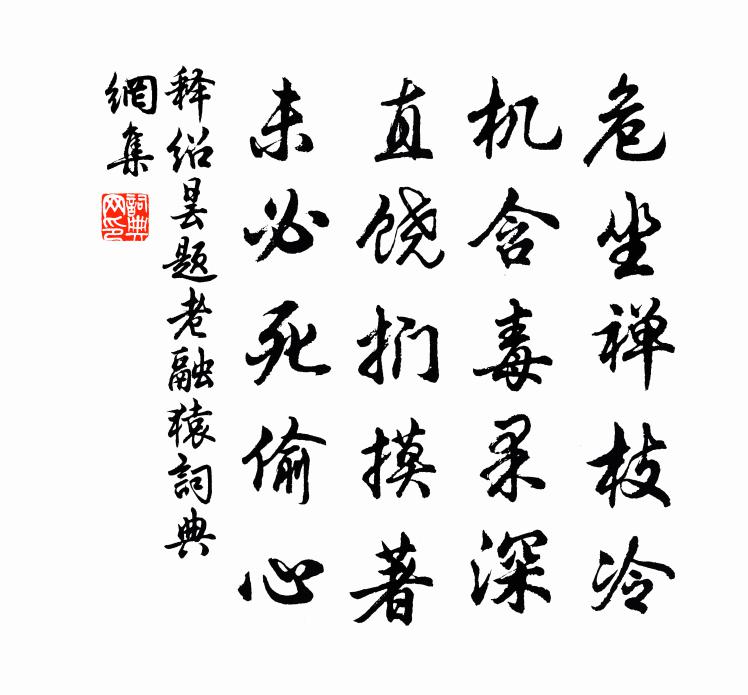 危坐禅枝冷
机含毒果深
直饶扪摸著
未必死偷心
释绍昙题老融猿詞典
網集
詞典
网印